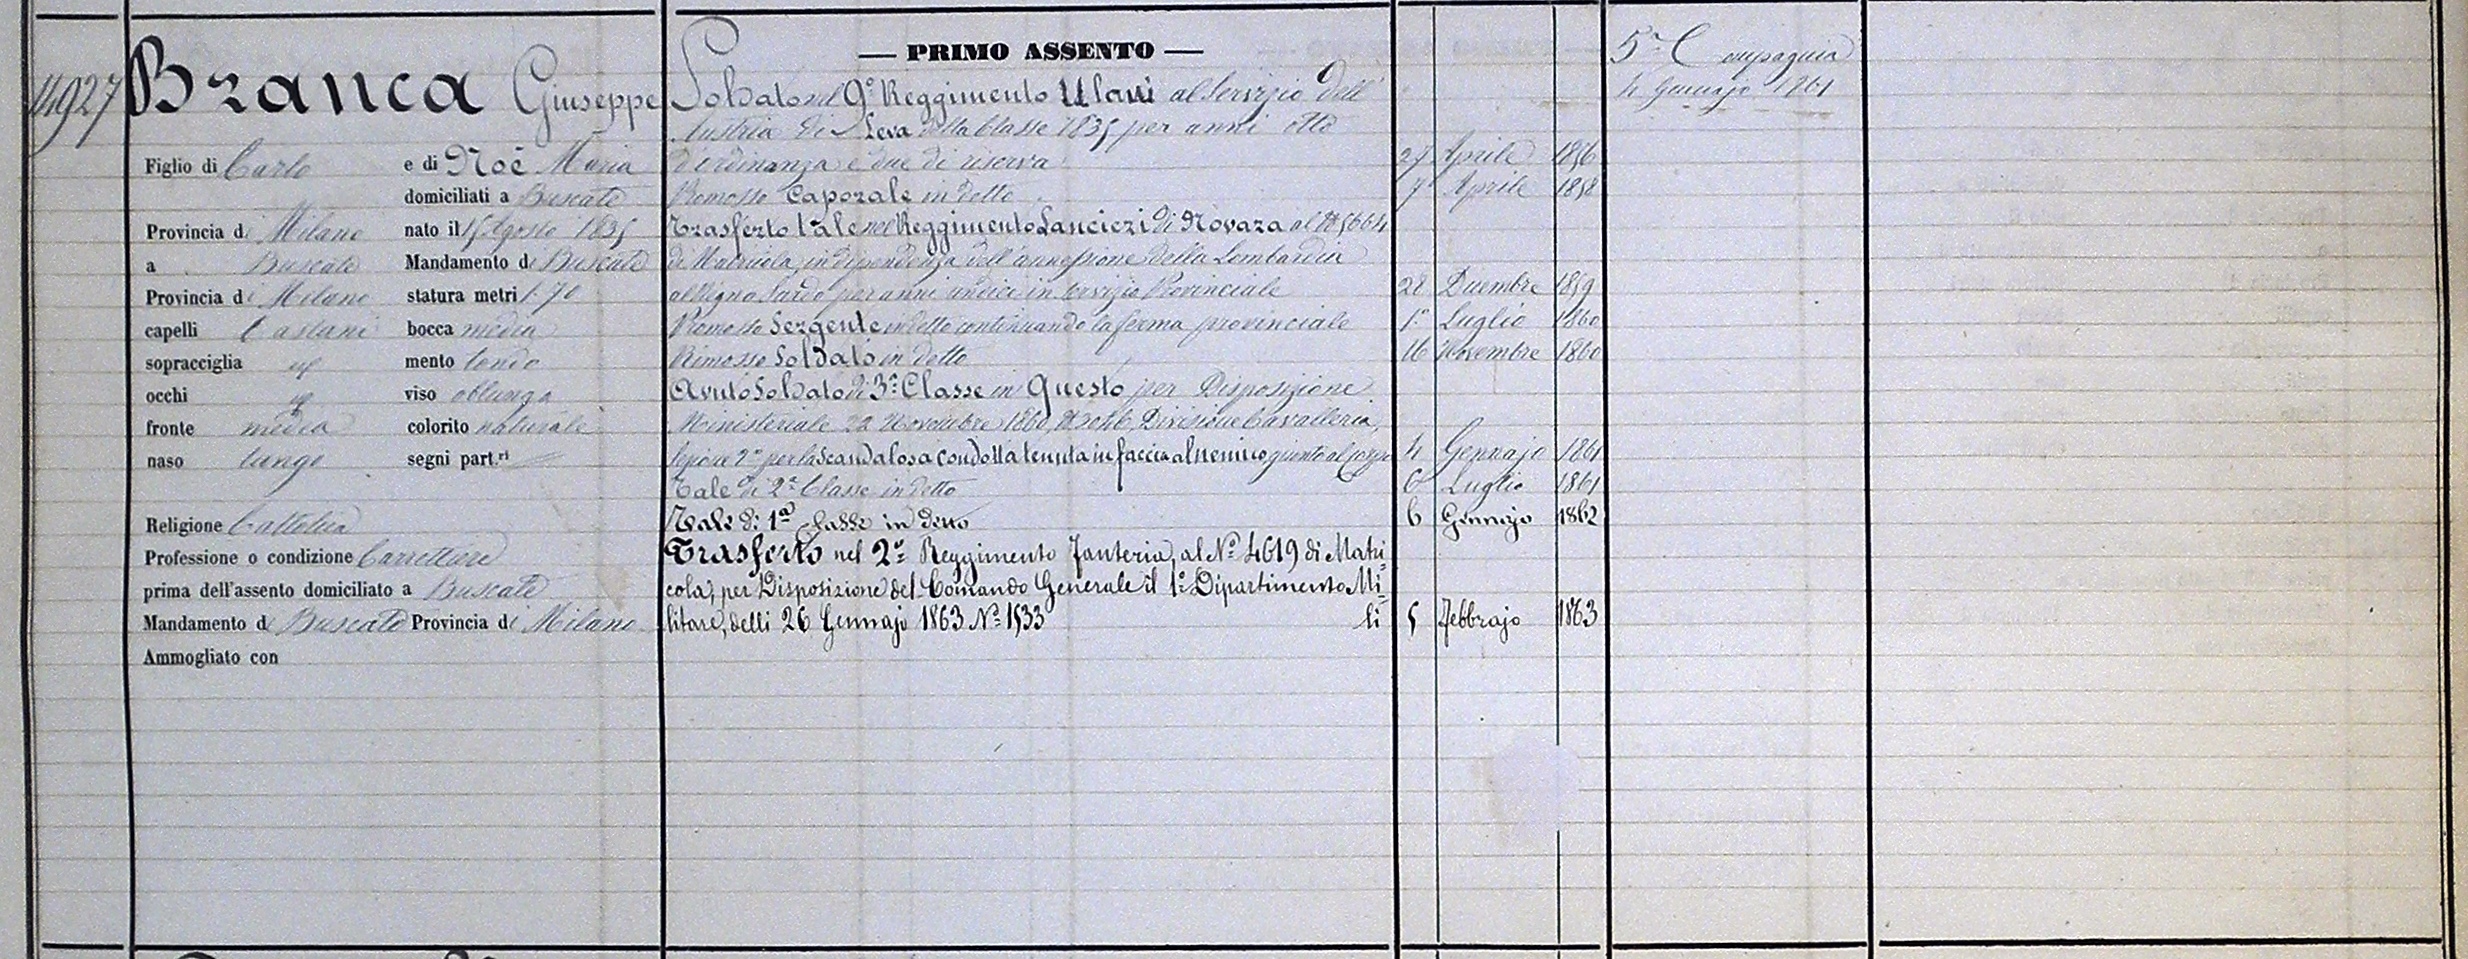 4927
Branca Giuseppe
Figlio di Carlo e di Noè Maria
domiciliati a Buscate
Provincia di Milano nato il 15 Agosto 1835
a Buscate Mandamento di Buscate
Provincia di Milano statura metri 1.70
capelli Castani bocca media
sopracciglia mento tondo
occhi viso oblungo
fronte media colorito naturale
naso lungo segni part.ri
Religione Cattolica
Professione o condizione Carrettiere
prima dell'assento domiciliato a Buscate
Mandamento di Buscate Provincia di Milano
Ammogliato con
— PRIMO ASSENTO —
Soldato nel 9° Reggimento Ulani al Servizio dell'
Austria di Leva della Classe 1835 per anni otto
d'ordinanza e due di riserva 27 Aprile 1856
Promosso Caporale in detto 7 Aprile 1858
Trasferto tale nel Reggimento Lancieri di Novara al N°
di Matricola, in dipendenza dell'annessione della Lombardia
al Regno Sardo per anni undici in servizio Provinciale 28 Dicembre 1859
Promosso Sergente in detto continuando la ferma provinciale 1° Luglio 1860
Rimosso Soldato in detto 16 Novembre 1860
Avuto Soldato di 3a Classe in Questo per Disposizione
Ministeriale 22 Novembre 1860, Divisione Cavalleria,
Sezione 2a per la Scandalosa condotta tenuta in faccia al nemico giunto al corpo 4 Gennajo 1861
Tale di 2a Classe in detto 6 Luglio 1861
Tale di 1a Classe in detto 6 Gennajo 1862
Trasferto nel 2° Reggimento Fanteria, al N° 4619 di Matri
cola, per Disposizione del Comando Generale il 1° Dipartimento Mi
litare, delli 26 Gennajo 1863 N° 1533 li 5 Febbrajo 1863
5a Compagnia
4 Gennajo 1861